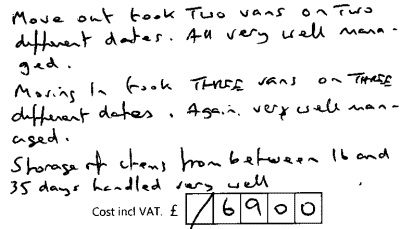 Move out took Two vans on Two
different dates. All very well mana-
ged.
Moving In took THREE vans on THREE
different dates. Again. very well man-
aged.
Storage of items from between 16 and
35 days handled very well.
Cost incl VAT. £ / 6 9 0 0